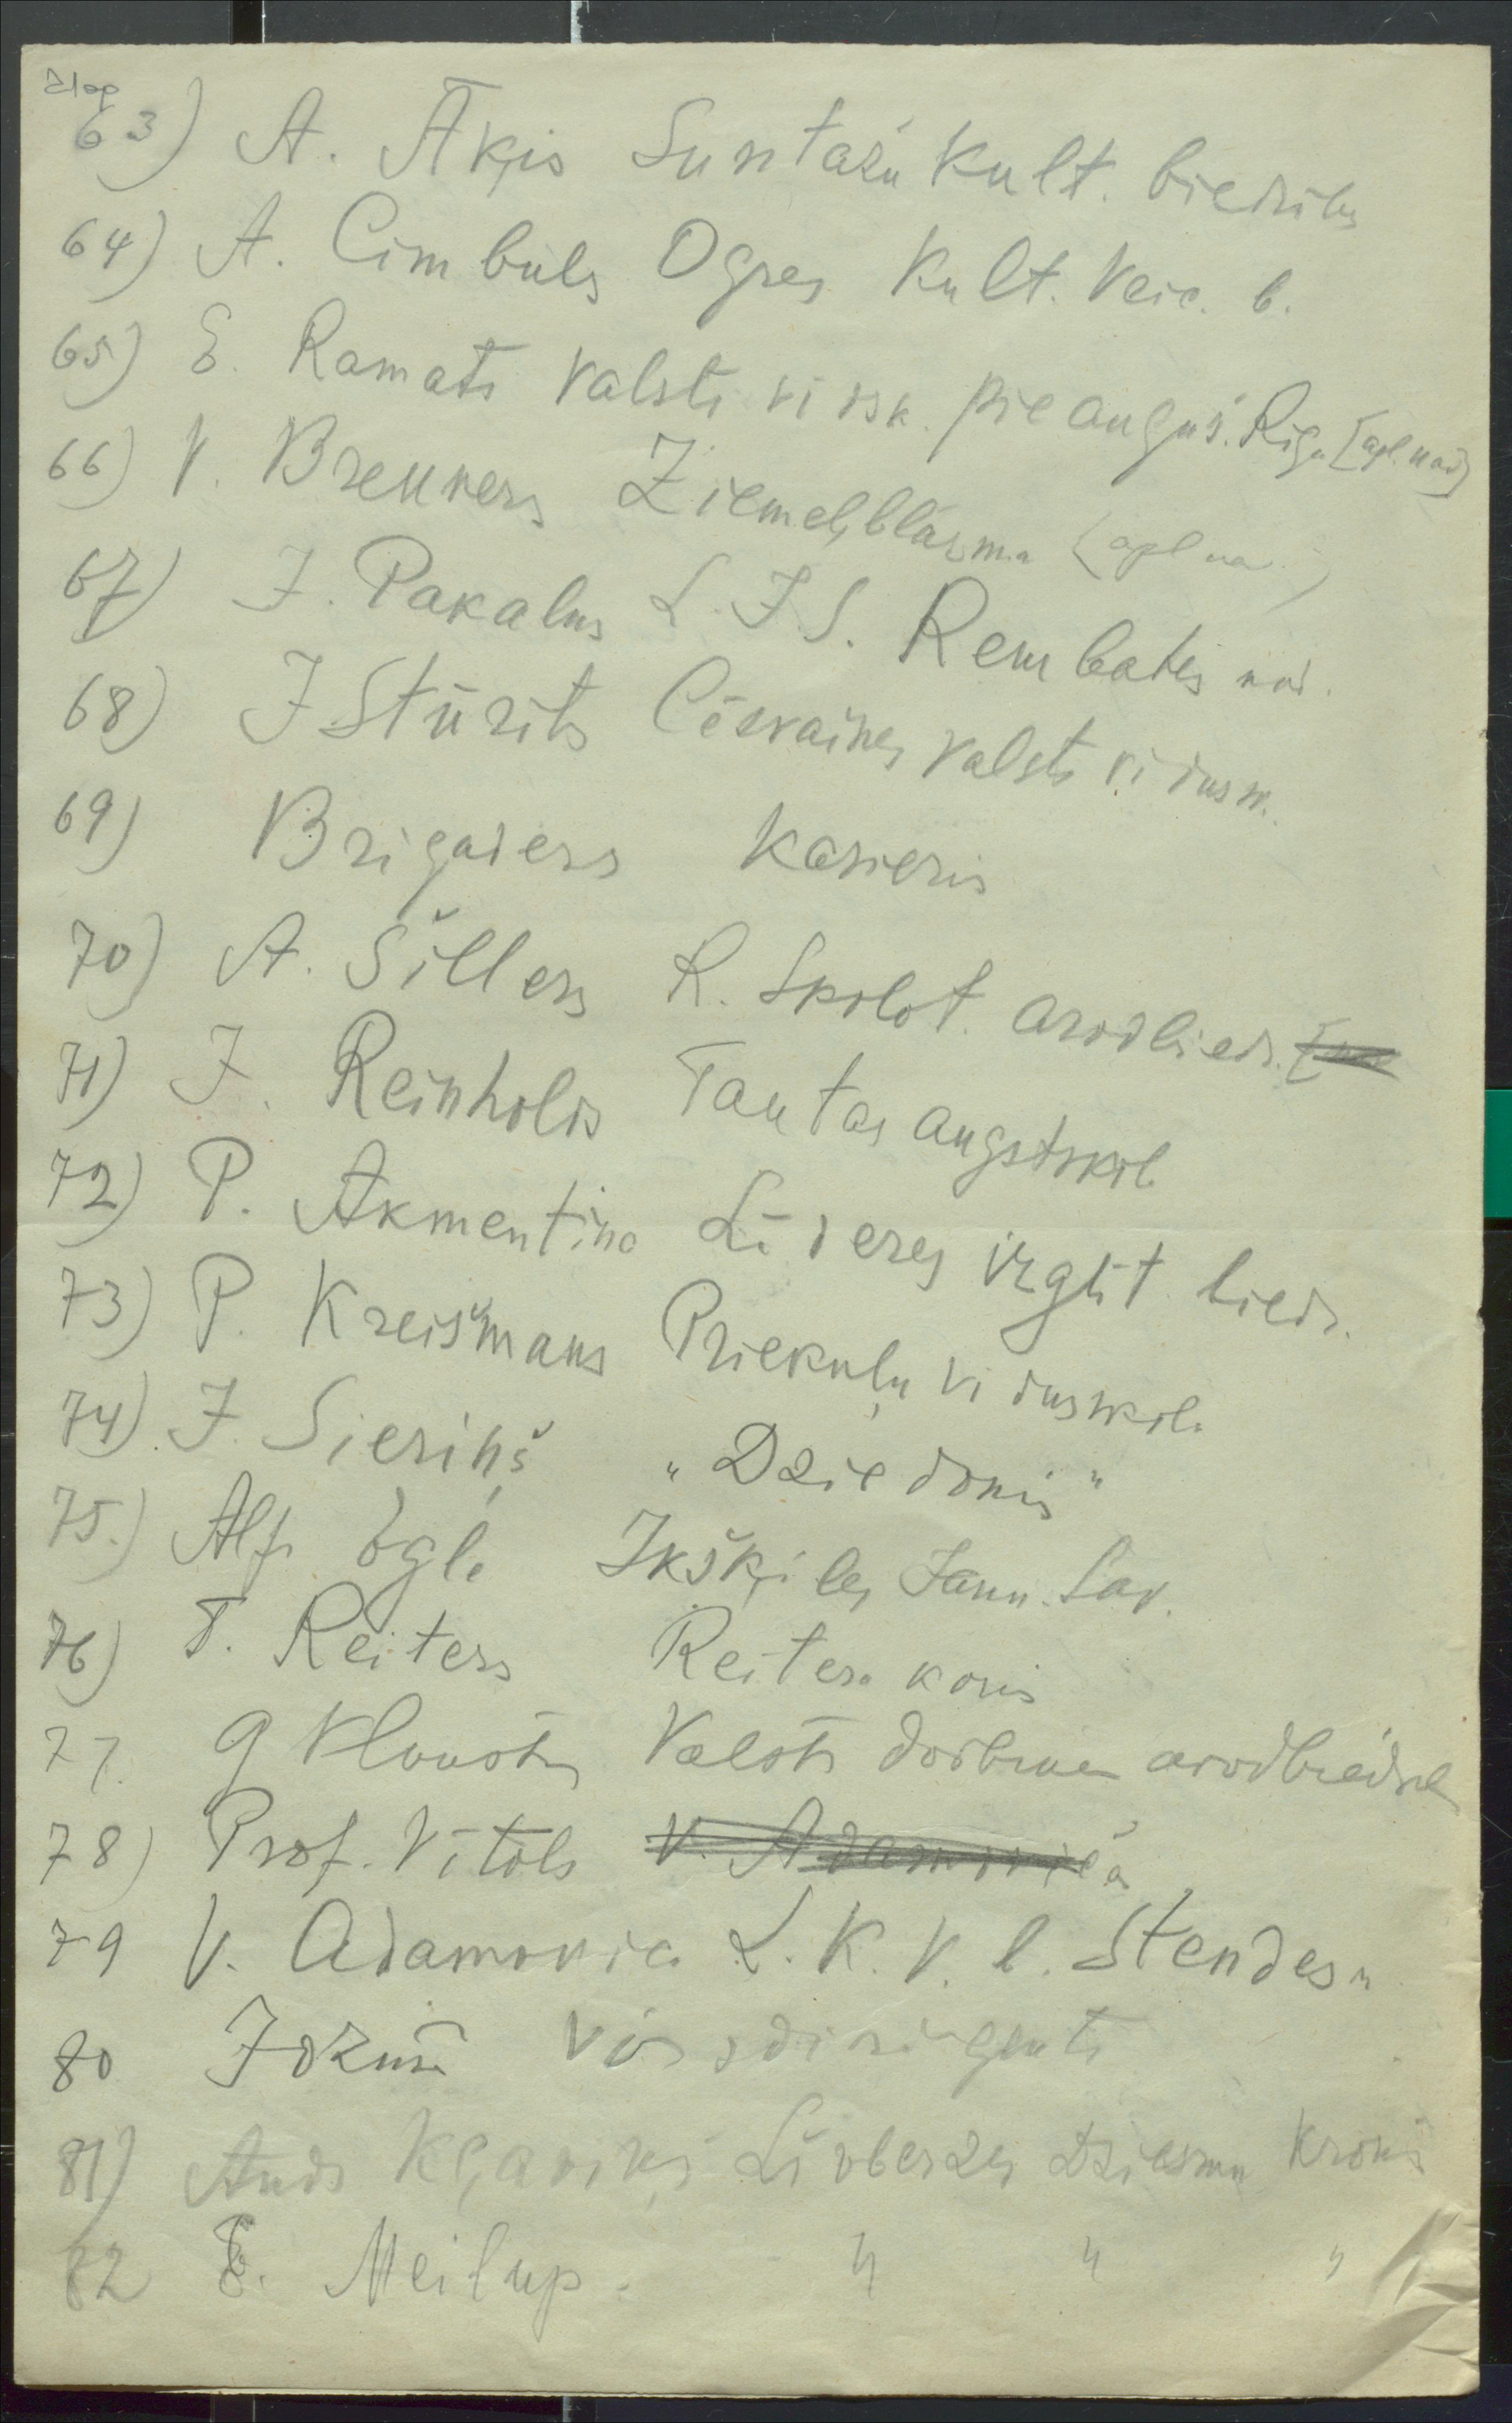 63) A. Āķis Suntažu Kult. biedrības
64) A. Cimbuls Ogres Kult. Veic. b.
65) E. Ramats Valsts vidsk. pieauguš. Rīgā [apl. nod]
66) V. Brenners Ziemeļblāzma (apl na )
67) J. Pakalns L. J. S. Rembates nod.
68) J Stūrīts Cēsvaines valsts vidussk.
69) Brigaders Kasieris
70) A. Šillers R. Skolot. arodbiedr.
71) J. Reinholds Tautas augstskol.
72) P. Akmentiņa Līderes izglīt. biedr.
73) P. Kreišmans Priekuļu vidusskol.
74) J. Sieriņš „Dziedonis"
75.) Alf. Egle Ikšķiles Jaun. Sav.
76) T. Reiters Reitera koris
77. Valsts darbin. arodbiedrīb
78) Prof. Vītols V. Adamoviča
79 V. Adamovičs L. K. V. b. Stendes n
80 Jozuus virsdirigents
81) Ands Kļaviņš Līvbērzes Dziesmu Kronis
82 E. Meilup. " " "